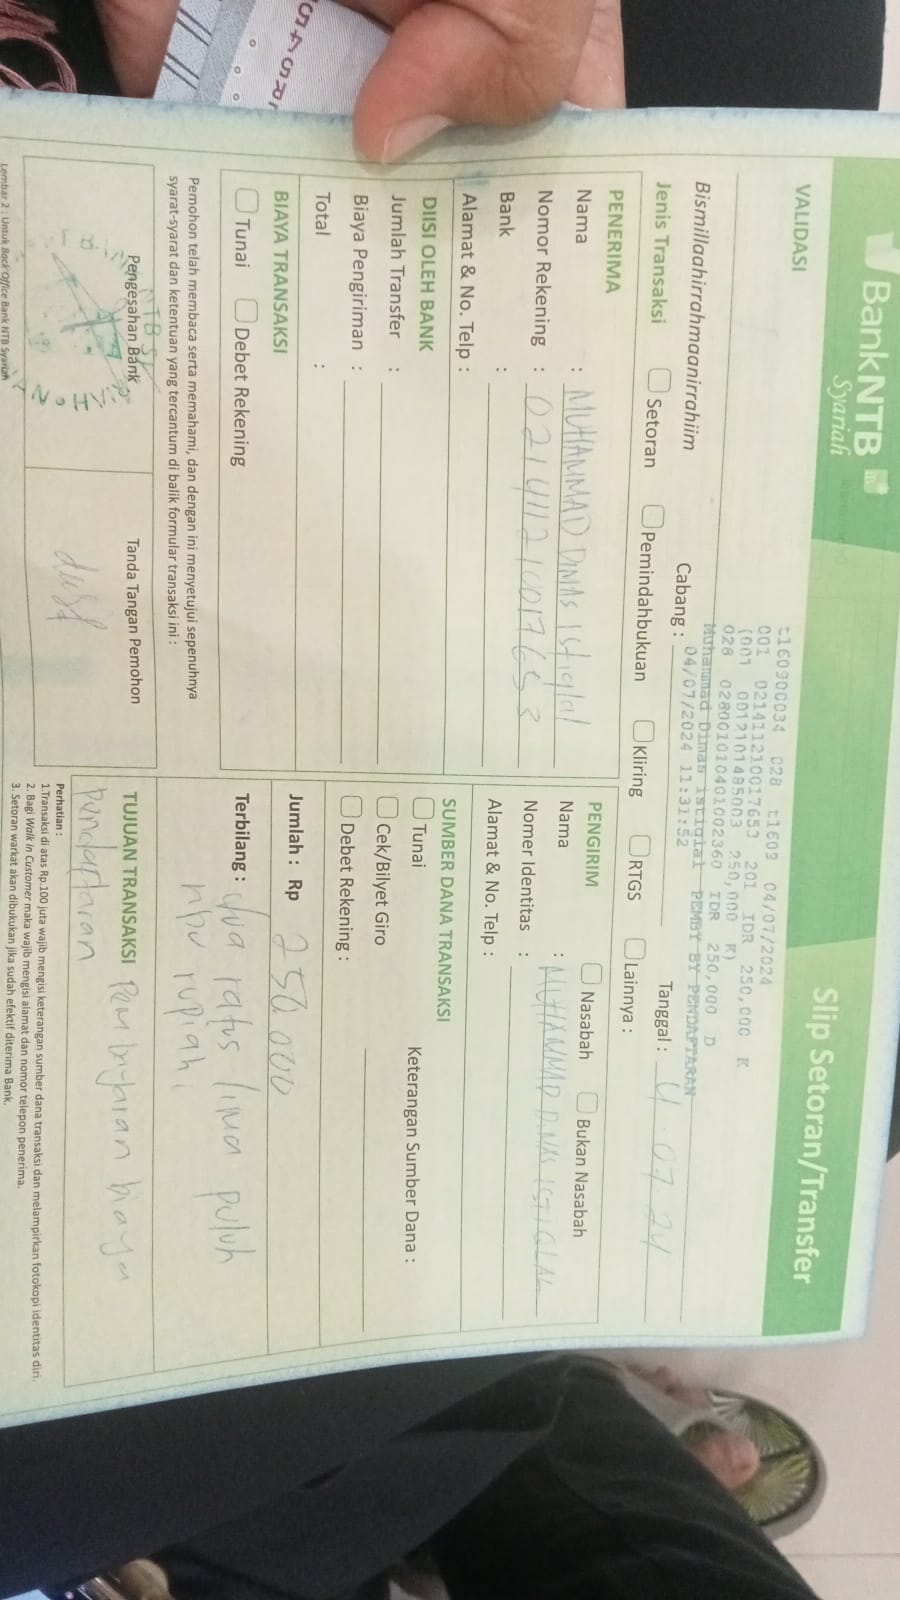 BankNTB
Syariah
Slip Setoran/Transfer
VALIDASI
t160900034 028 t1609 04/07/2024
001 021411210017653 201 IDR 250,000 K
(001 0012101495003 250,000 K)
028 028001010401002360 IDR 250,000 D
Muhammad Dimas istiqlal PEMBY BY PENDAFTARAN
04/07/2024 11:31:52
Bismillaahirrahmaanirrahiim
Cabang :
Tanggal : 4.07.24
Jenis Transaksi Setoran Pemindahbukuan Kliring RTGS Lainnya :
PENERIMA
Nama : MUHAMMAD DIMAS istiqlal
Nomor Rekening : 021411210017653
Bank :
Alamat & No. Telp :
PENGIRIM Nasabah Bukan Nasabah
Nama : MUHAMMAD DIMAS ISTIQLAL
Nomer Identitas :
Alamat & No. Telp :
DIISI OLEH BANK
Jumlah Transfer :
Biaya Pengiriman :
Total :
SUMBER DANA TRANSAKSI
Tunai Keterangan Sumber Dana :
Cek/Bilyet Giro
Debet Rekening :
BIAYA TRANSAKSI
Tunai Debet Rekening
Jumlah : Rp 250.000
Terbilang : dua ratus lima puluh
ribu rupiah
Pemohon telah membaca serta memahami, dan dengan ini menyetujui sepenuhnya
syarat-syarat dan ketentuan yang tercantum di balik formular transaksi ini :
Pengesahan Bank
Tanda Tangan Pemohon
TUJUAN TRANSAKSI Pembayaran biaya
pendaftaran
Perhatian :
1.Transaksi di atas Rp.100 juta wajib mengisi keterangan sumber dana transaksi dan melampirkan fotokopi identitas diri.
2. Bagi Walk in Customer maka wajib mengisi alamat dan nomor telepon penerima.
3. Setoran warkat akan dibukukan jika sudah efektif diterima Bank.
Lembar 2 : Untuk Back Office Bank NTB Syariah